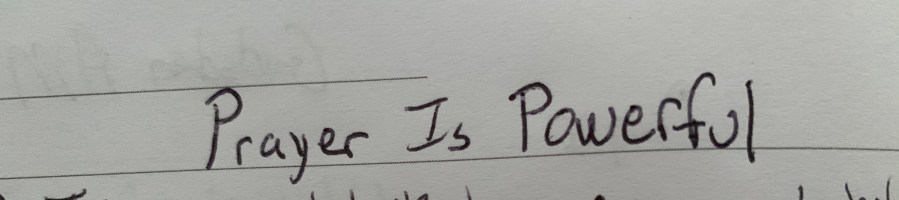 Prayer Is Powerful